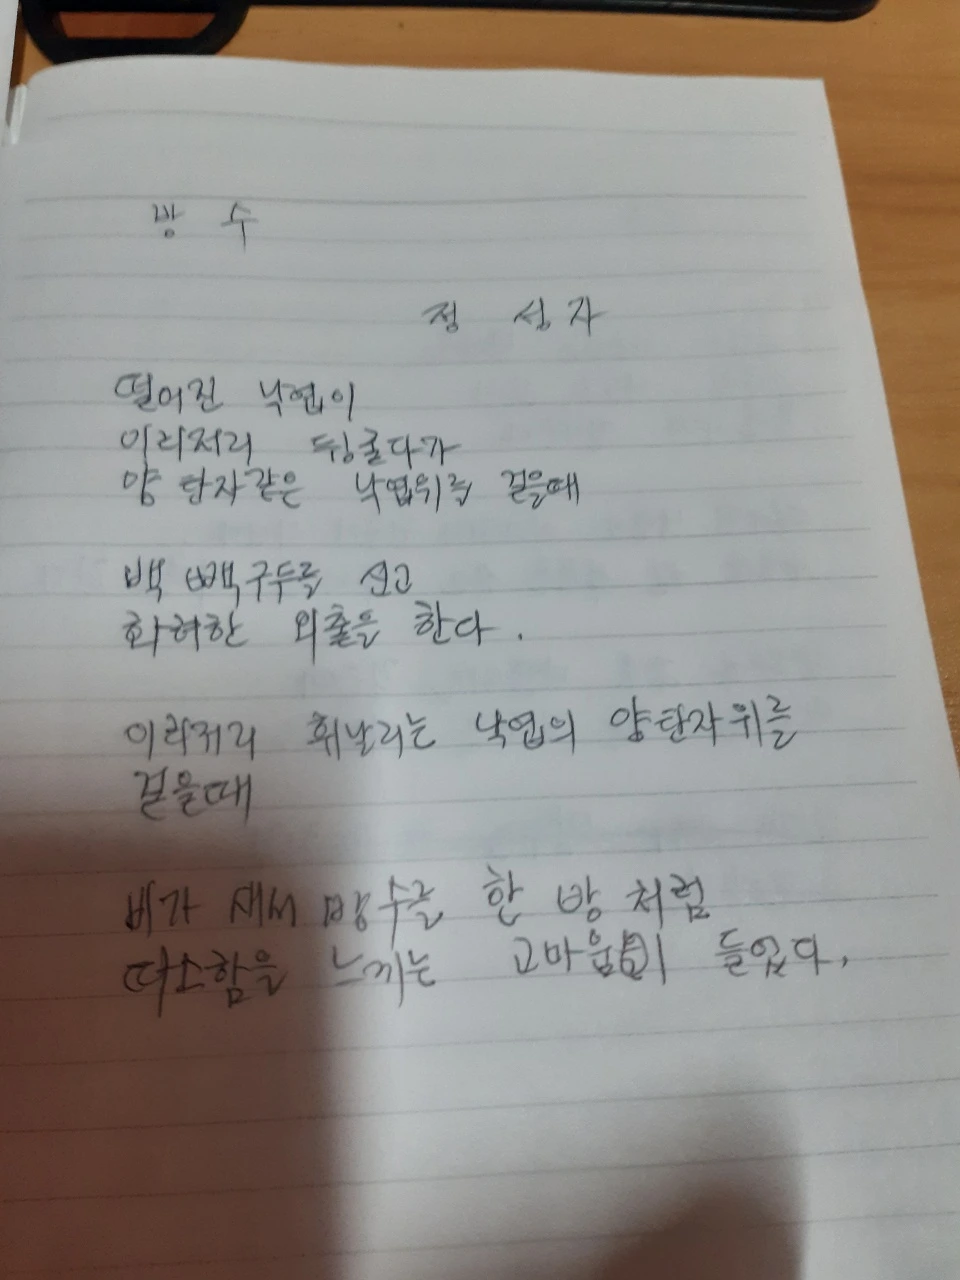 방 수
정 성자
떨어진 낙엽이
이리저리 뒹굴다가
양 탄자같은 낙엽위를 걸을때
백 빽구두를 신고
화려한 외출을 한다.
이리저리 휘날리는 낙엽의 양탄자위를
걸을때
비가 새서 방수를 한 방 처럼
따스함을 느끼는 고마움이 들었다.